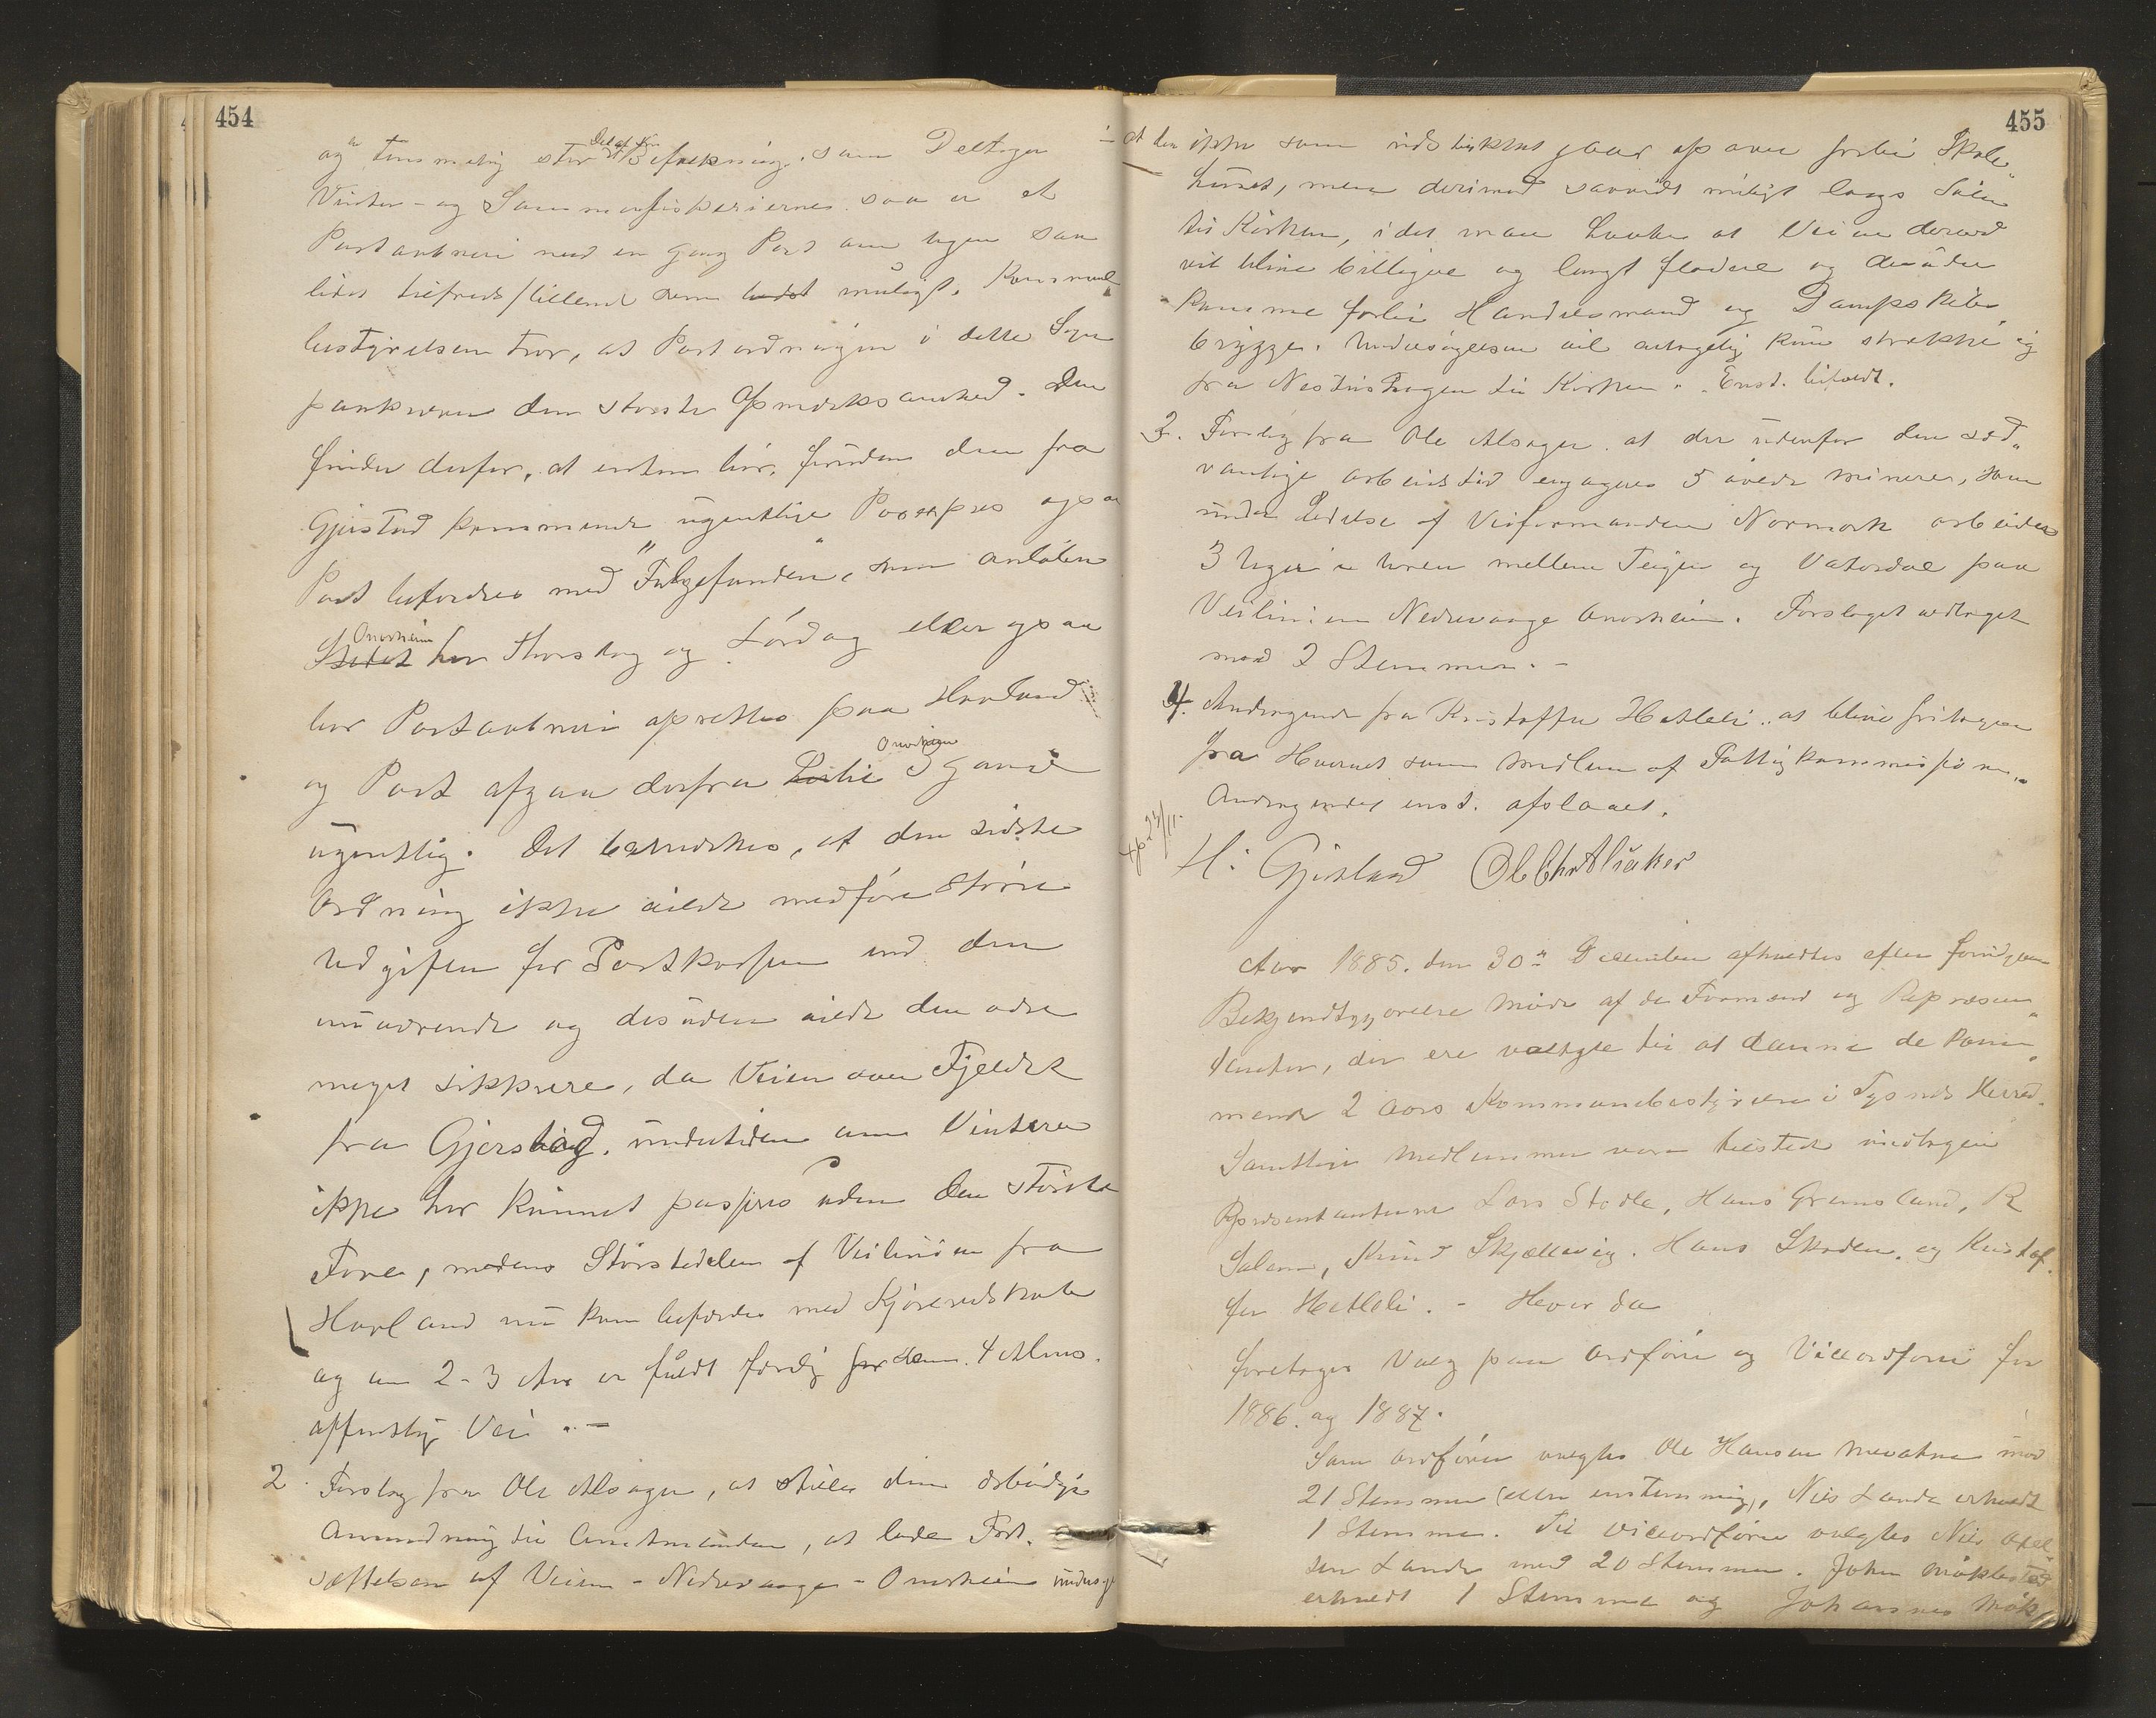 454
og en temmelig stor Del af en Befolkning, som Deltager i
Vinter- og Sommerfiskerierne saa er et
Postaabneri med en gang Post om Ugen saa
lidet tilfredsstillende som muligt. Kommunebestyrelsen
tror, at Postordningen i dette Sogn
paakræver den største Opmærksomhed. Den
finder derfor, at enten bør, foruden den fra
Gjerstad kommende ugentlige Post ogsaa
Post befordres med "Folgefonden", som anløber
Stedet Onarheim hver Thorsdag og Lørdag eller ogsaa
bør Postaabneri oprettes paa Havland
og Post afgaa derfra Onarheim 3 gange
ugentlig. Det bemærkes, at den sidste
Ordning ikke vilde medføre større
Udgifter for Postkassen end den
nuværende og desuden vilde den være
meget sikkrere, da Veien over Fjeldet
fra Gjerstad undertiden om Vinteren
ikke har kunnet passeres uden den største
Fare, medens Størstedelen af Veilinien fra
Havland nu kan befordres med Kjøreredskab
og om 2-3 Aar er fuldt færdig som 4 Alens
offentlig Vei. -
2. Forslag fra Ole Alsager, at stille den ærbødige
Anmodning til Amtmanden, at lade Fort-
sættelsen af Veien - Nedrevaage - Onarheim undersøge
455
at den ikke som udstikket gaar op over forbi Skole-
huset, men derimod saavidt muligt langs Søen
til Kirken, idet man tænker at Veien derved
vil blive billigere og langt fladere og desuden
komme forbi Handelsmand og Dampskibs-
brygge. Undersøgelsen vil antagelig kun strække sig
fra til Kirken. Enst. bifaldt.
3. Forslag fra Ole Alsager at der udenfor den sæd-
vanlige arbeidstid engageres 5 øvede minerer, som
under Ledelse af Veiformanden Normark arbeider
3 Uger i Uren mellem Teigen og Vatsdal paa
Veilinien Nedrevaage Onarheim. Forslaget vedtaget
mod 2 Stemmer. -
4. Andragende fra Kristoffer Hetleli at blive fritagen
fra Hvervet som Medlem af Fattigkommissionen.
Andragendet enst. afslaaet.
23/11.
H. Gjerstad Ol Chr Alsaker
Aar 1885. den 30te December afholdtes efter foregaaende
Bekjendtgjørelse Møde af de Formænd og Repræsen-
tanter, der ere valgte til at danne de kom-
mende 2 Aars Kommunebestyrelse i Tysnes Herred.
Samtlige Medlemmer vare tilstede undtagen
Repræsentanterne Lars Stodle, Hans Gremsland, R
Knud Skjellevig. Hans Skaden og Kristof-
fer Hetleli. - Hvor da
foretoges Valg paa Ordfører og Viceordfører for
1886 og 1887.
Som Ordfører valgtes Ole Hansen Mevatne med
21 Stemmer (eller enstemmig), Nils Lande erholdt
1 Stemme. Til Viceordfører valgtes Nils Axel-
sen Lande med 20 Stemmer. John Møklestad
erholdt 1 Stemme og Johannes Møk-